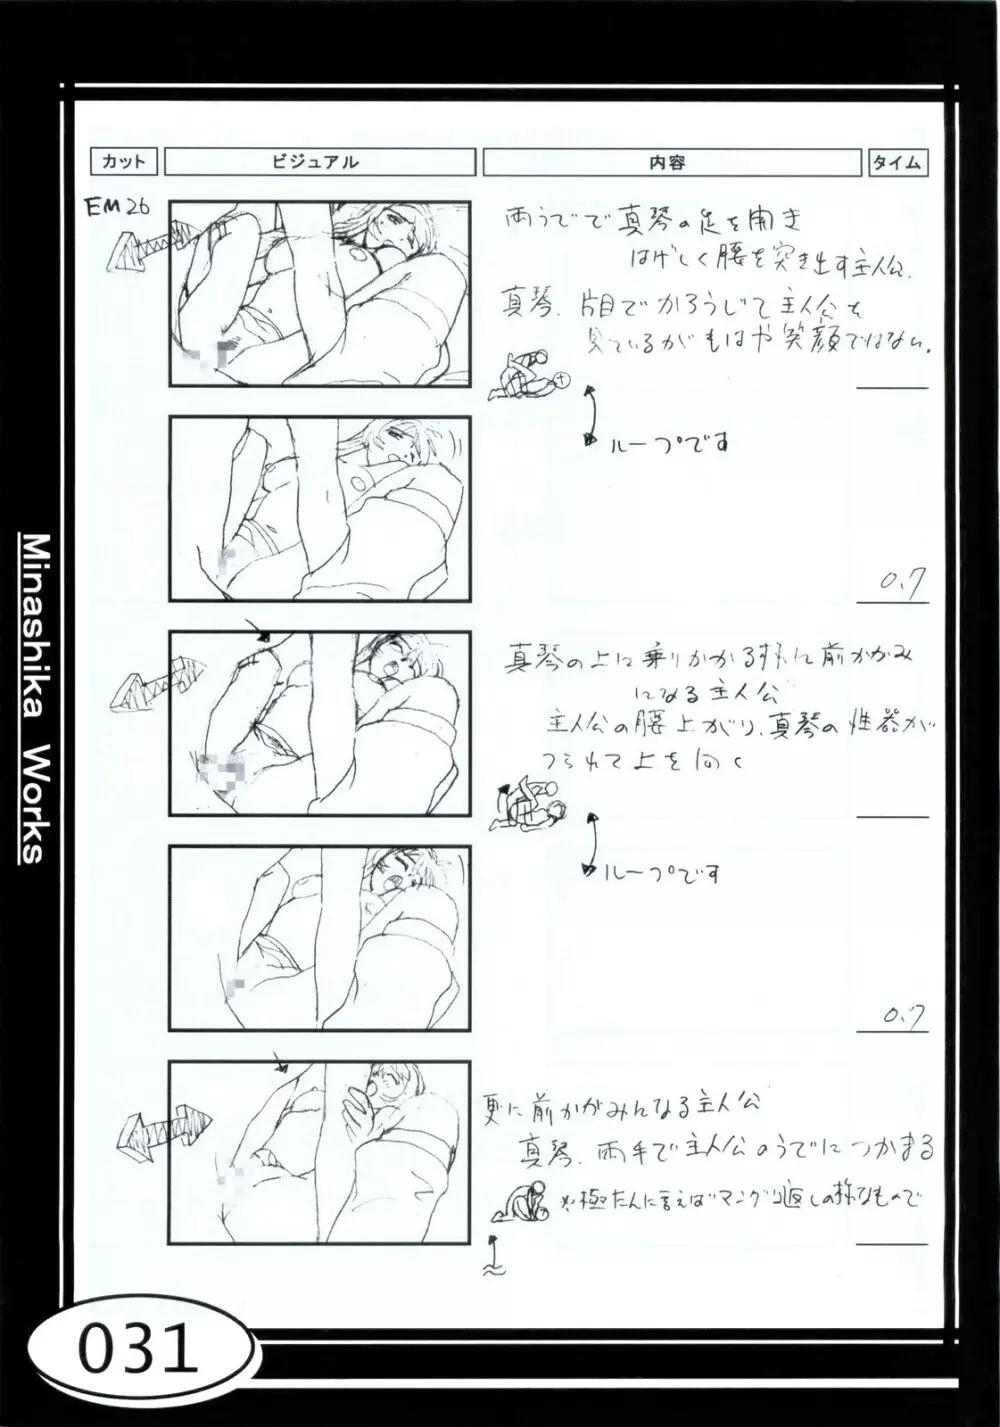 カット
ビジュアル
内容
タイム
EM26
両うでで真琴の足を開き
はげしく腰を突き出す主人公.
真琴、片目でかろうじて主人公を
見ているがもはや笑顔ではない.
ループです
0.7
真琴の上に乗りかかる様に前かがみ
になる主人公
主人公の腰上がり、真琴の性器が
つられて上を向く
ループです
0.7
更に前かがみになる主人公
真琴、両手で主人公のうでにつかまる
※極たんに言えば"マングリ返しの様なもので
Minashika Works
031